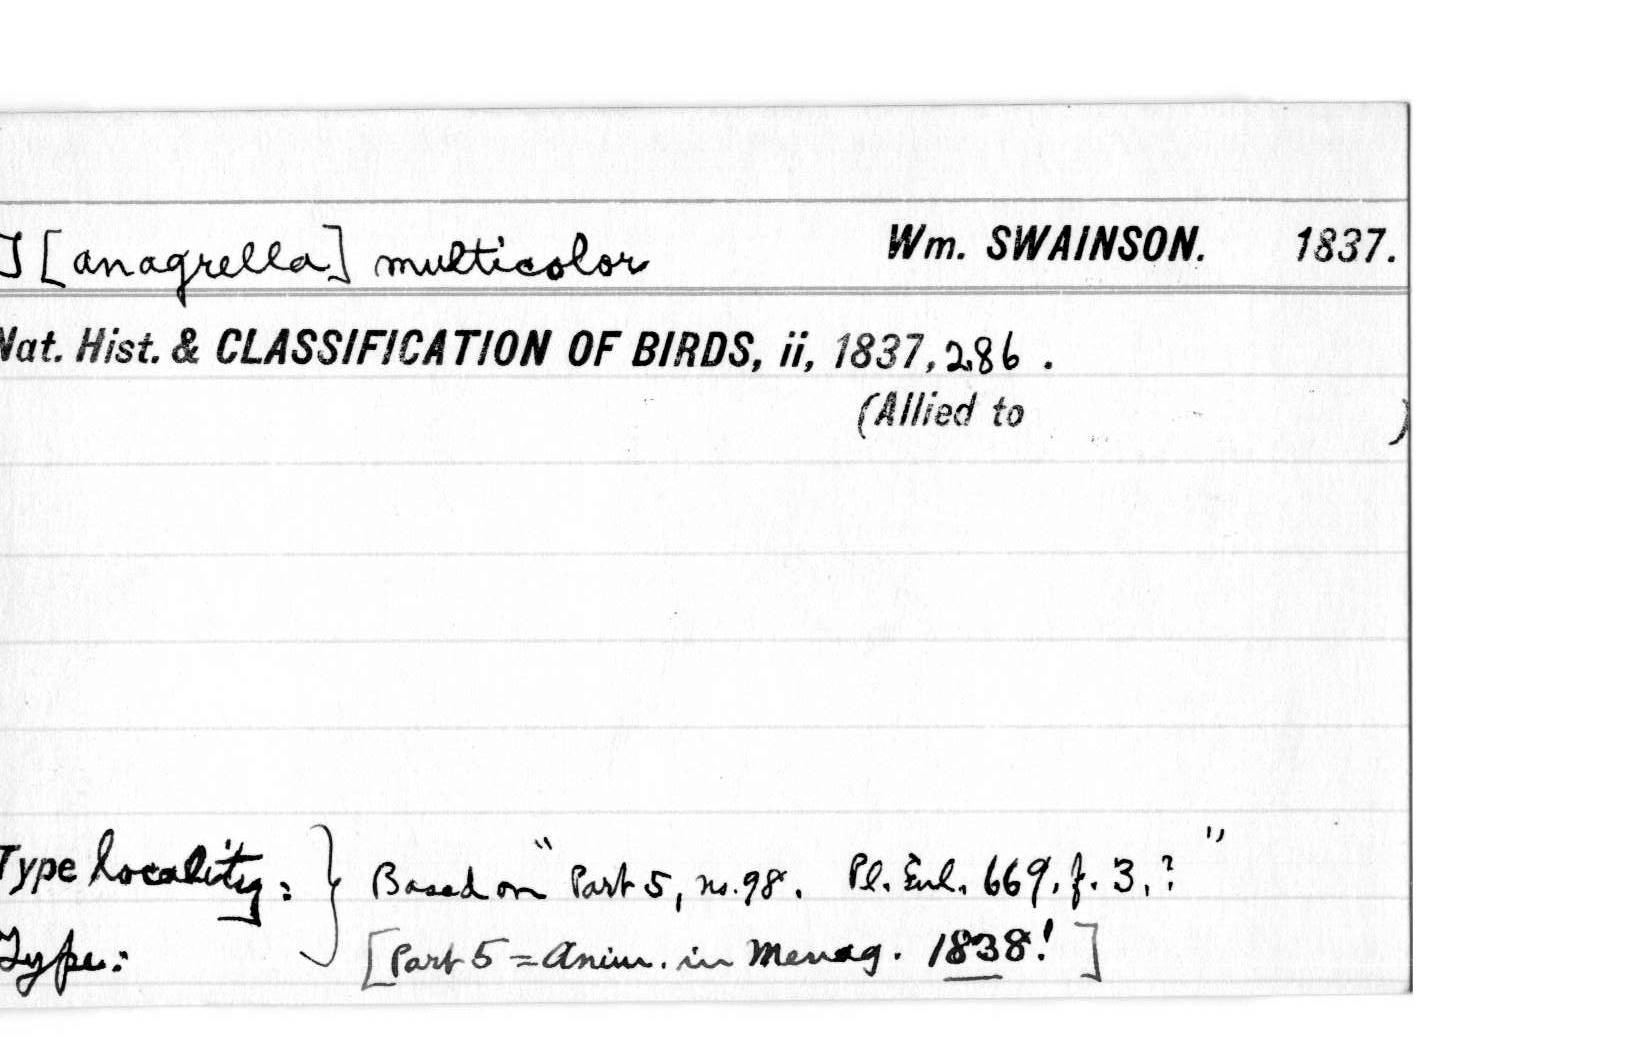 T[anagrella] multicolor Wm. SWAINSON. 1837.
Nat. Hist. & CLASSIFICATION OF BIRDS, ii, 1837, 286.
(Allied to )
Type locality: } Based on "Part 5, no. 98. Pl. Enl. 669, f. 3.?"
Type: [Part 5 = Anim. in Menag. 1838!]